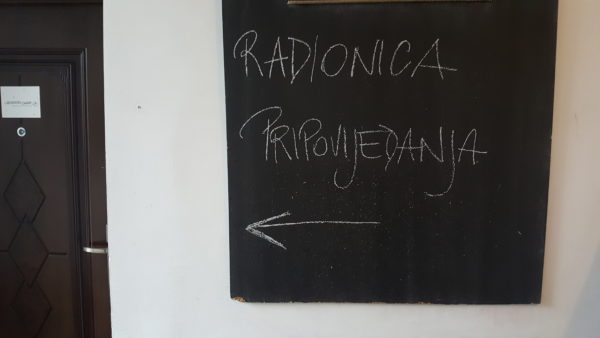 RADIONICA
PRIPOVIJEDANJA